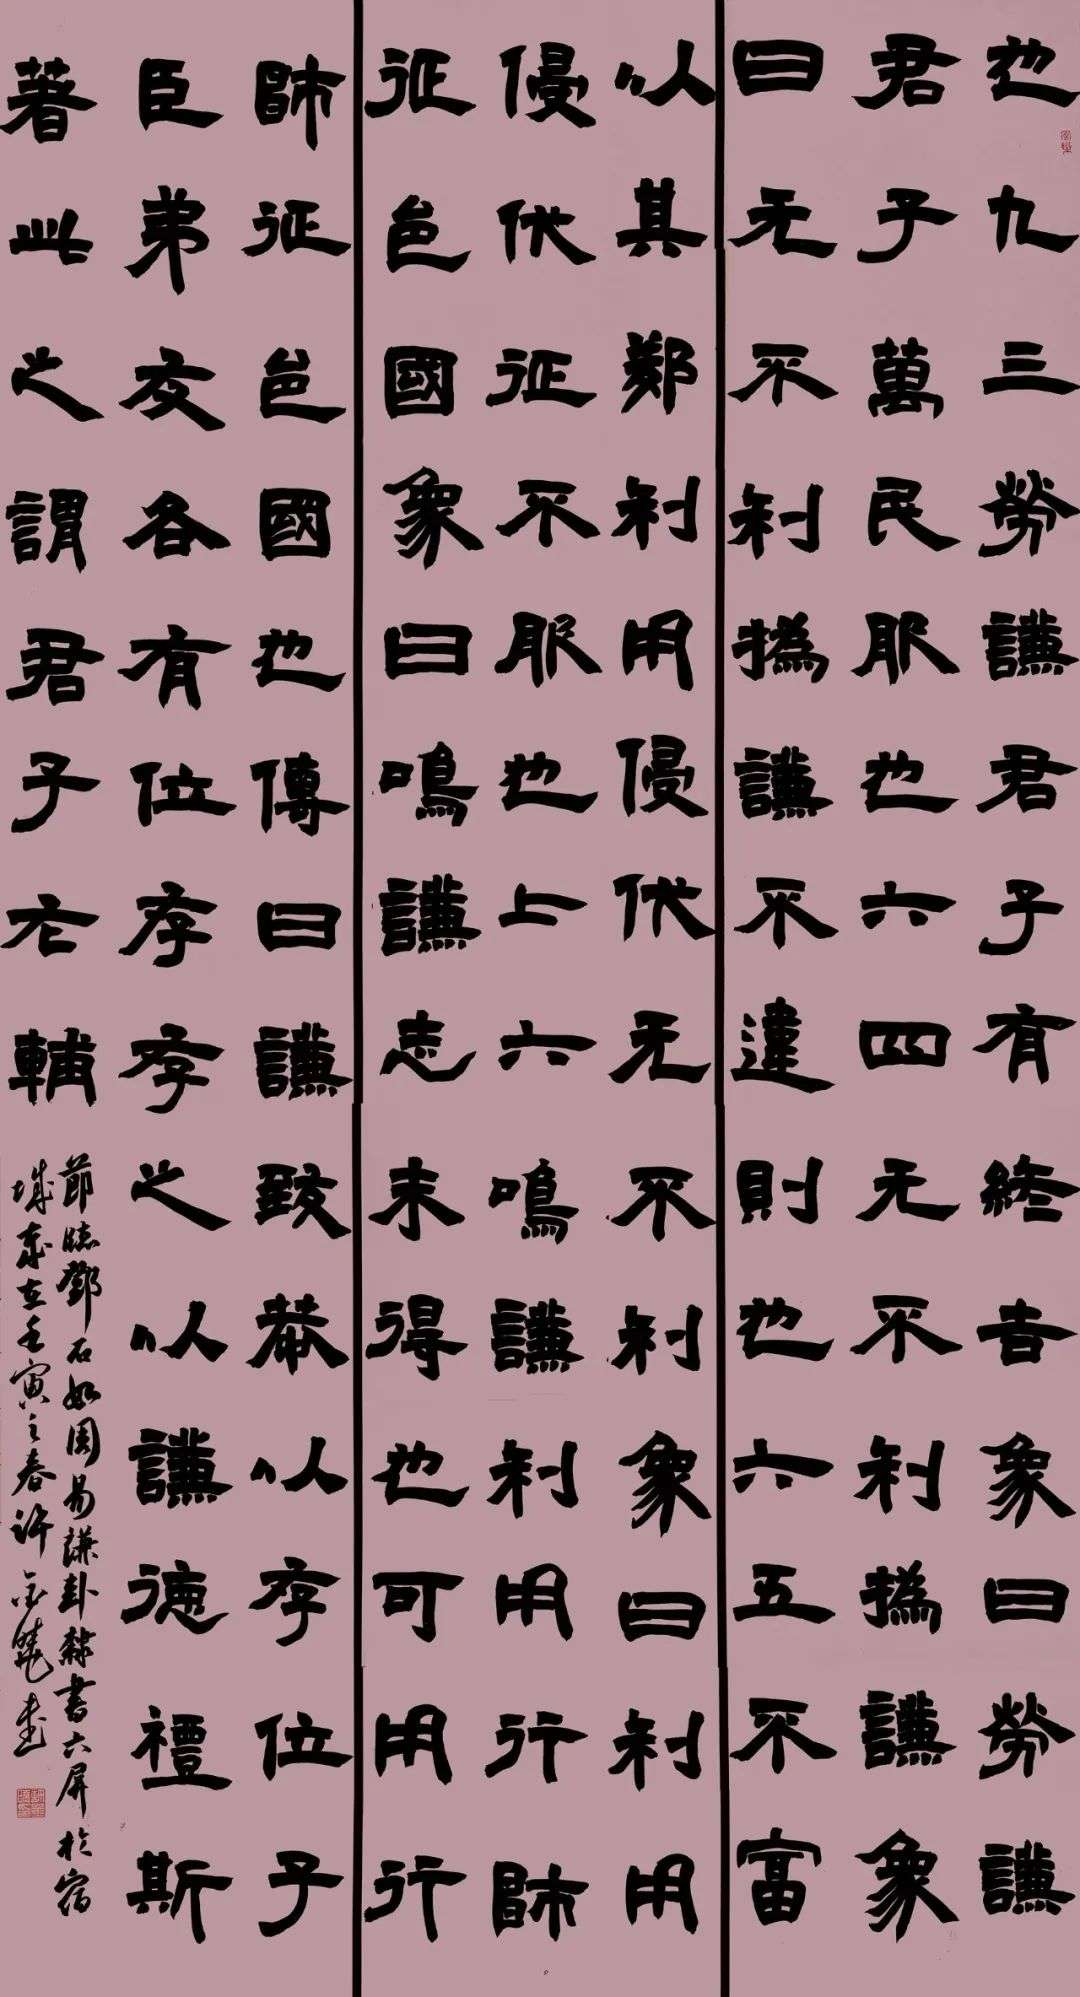 也九三勞謙君子有終吉象曰勞謙
君子萬民服也六四无不利撝謙象
曰无不利撝謙不違則也六五不富
以其鄰利用侵伐无不利象曰利用
侵伐征不服也上六鳴謙利用行師
征邑國象曰鳴謙志未得也可用行
師征邑國也傳曰謙致恭以存位子
臣弟友各有位存存之以謙德禮斯
著此之謂君子輔
節臨鄧石如周易謙卦隸書六屏於宿
城歲在壬寅之春許曉書